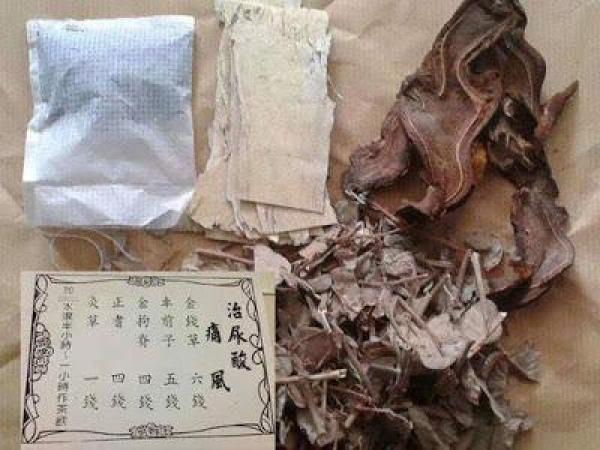 治尿酸
痛風
金錢草 六錢
車前子 五錢
金狗脊 四錢
正耆 四錢
炙草 一錢
水滾半小時~一小時作茶飲